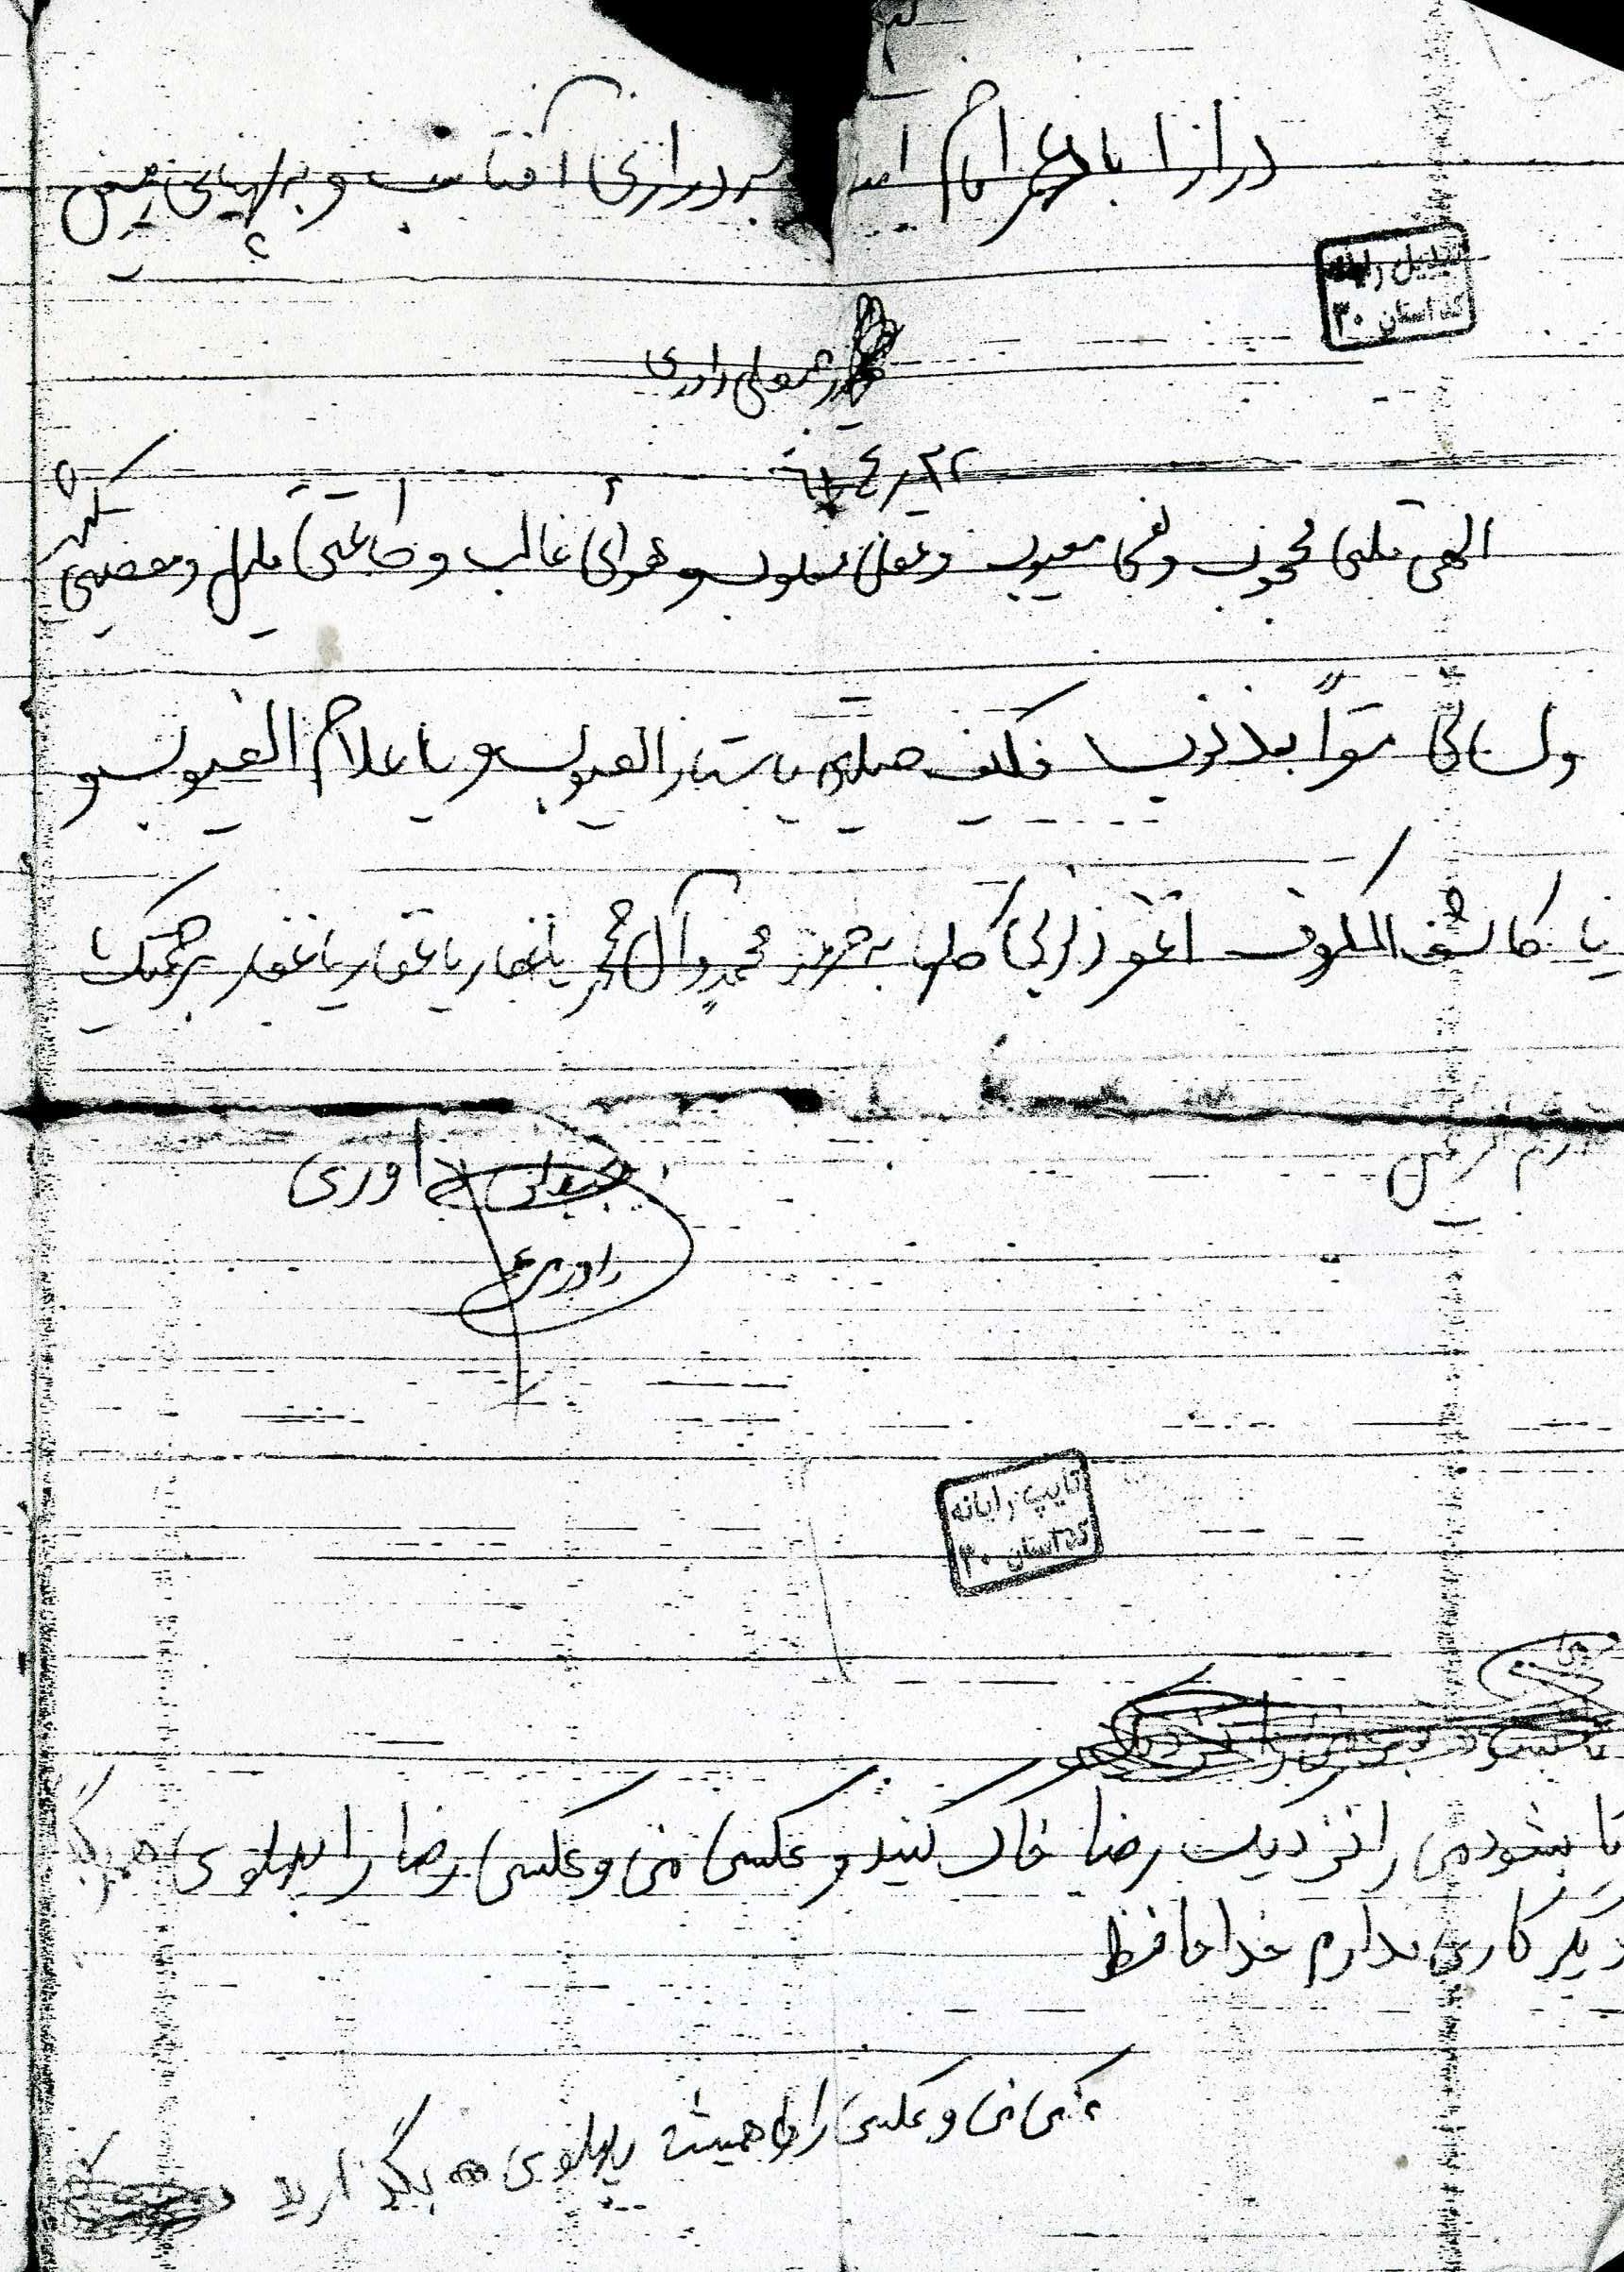 به درازی آفتاب و به پهنای زمین
تبدیل رایانه
کد استان ۳۰
راوری
الهی قلبی محجوب و نفسی معیوب و عقلی مغلوب و هوائی غالب و طاعتی قلیل و معصیتی کثیر
ولسانی مقراً بذنوب فکیف حیلتی یا ستار العیوب و یا علام الغیوب و
یا کاشف الکروب اغفر ذنوبی کلها به حرمة محمدٍ وآل محمد یا غفار یا غفار یا غفار برحمتک یا
ارحم الرحمین
راوری
تایپ رایانه
کد استان ۳۰
من را نزدیک رضا خاک کنید و عکس من و عکس رضا را پهلوی هم
دیگر کاری ندارم خداحافظ
عکس من و عکس را همیشه پهلوی هم بگذارید